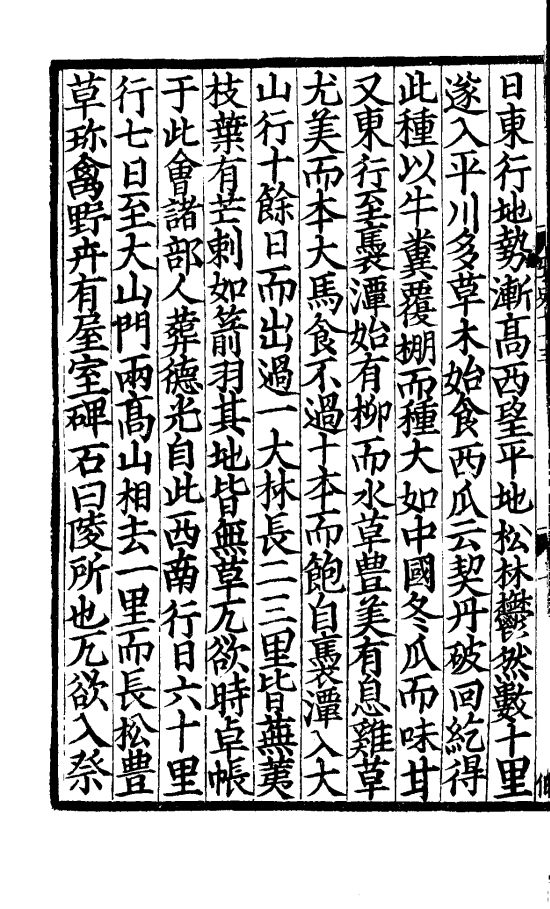 日東行地勢漸高西望平地松林鬱然數十里
遂入平川多草木始食西瓜云契丹破回紇得
此種以牛糞覆棚而種大如中國冬瓜而味甘
又東行至褭潭始有柳而水草豊美有息雞草
尤美而本大馬食不過十本而飽自褭潭入大
山行十餘日而出過一大林長二三里皆蕪荑
枝葉有芒刺如箭羽其地皆無草兀欲時卓帳
于此會諸部人葬德光自此西南行日六十里
行七日至大山門兩高山相去一里而長松豊
草珎禽野卉有屋室碑石曰陵所也兀欲入祭